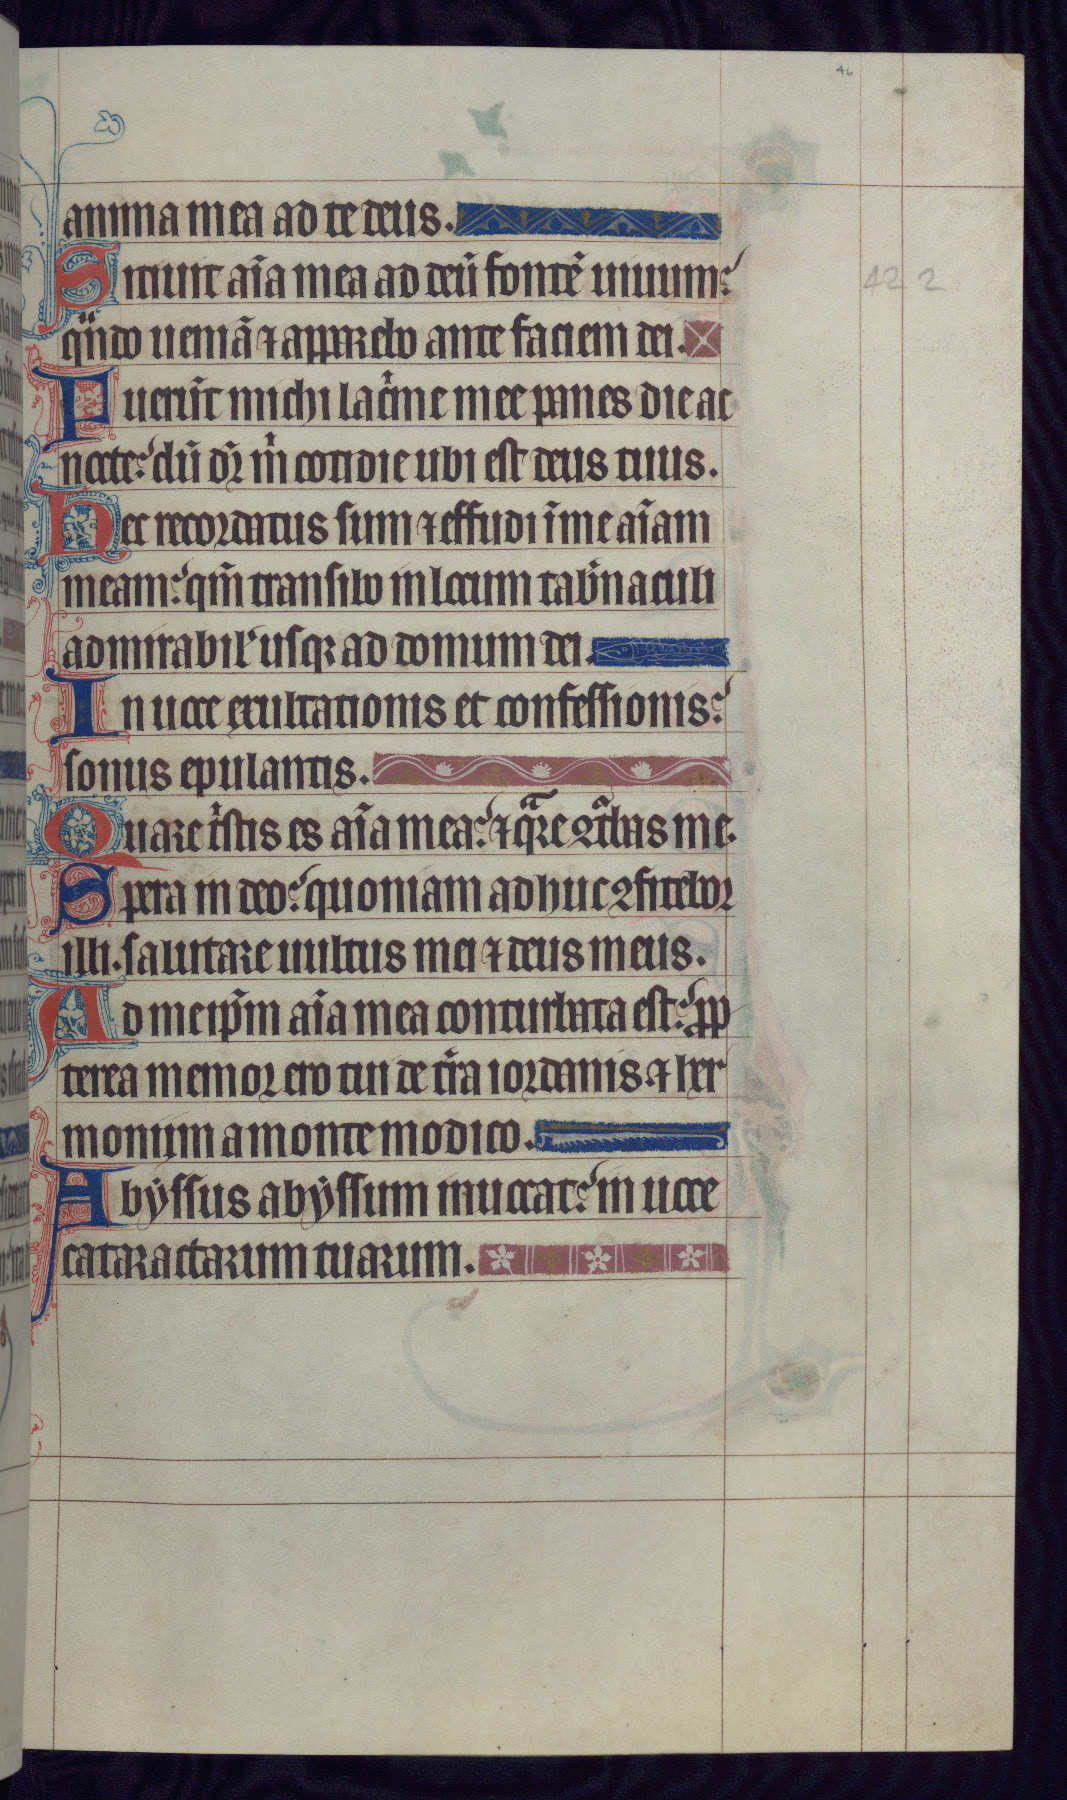 46
anima mea ad te deus.
Sitiuit aīa mea ad deū fontē uiuum:
qn̄do ueniā ⁊ apparebo ante faciem dei.
42 2
Fuerūt michi lac̄me mee panes die ac
nocte: dū dr̄ m̄ cotidie ubi est deus tuus.
Hec recordatus sum ⁊ effudi ī me aīam
meam: qm̄ transibo in locum tab̄naculi
admirabil' usqꝫ ad domum dei.
In uoce exultationis et confessionis:
sonus epulantis.
Quare tⁱstis es aīa mea: ⁊ qᵃre ꝯtᵃbas me.
Spera in deo: quoniam adhuc ꝯfitebor
illi. salutare uultus mei ⁊ deus meus.
Ad meip̄m aīa mea conturbata est: ꝓp
terea memor ero tui de tr̄a iordanis ⁊ her
moniim a monte modico.
Abyssus abyssum inuocat: in uoce
cataractarum tuarum.